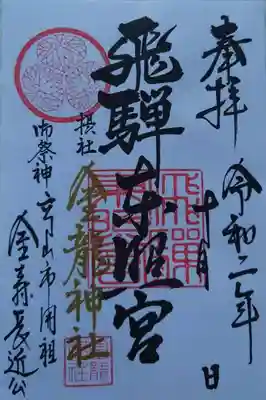 奉拝
令和二年
十月 日
飛騨東照宮
摂社
金龍神社
御祭神 高山市開祖
金森長近公